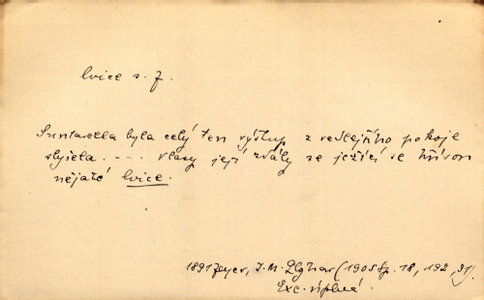 lvice s. f.
Suntarella byla celý ten výstup z vedlejšího pokoje
slyšela. --- vlasy její zdály se ježící se hřívou
nějaké lvice.
1891 Zeyer, J. M. Plojhar (1905 Sp. 18, 192, 31).
Exc. úplná.